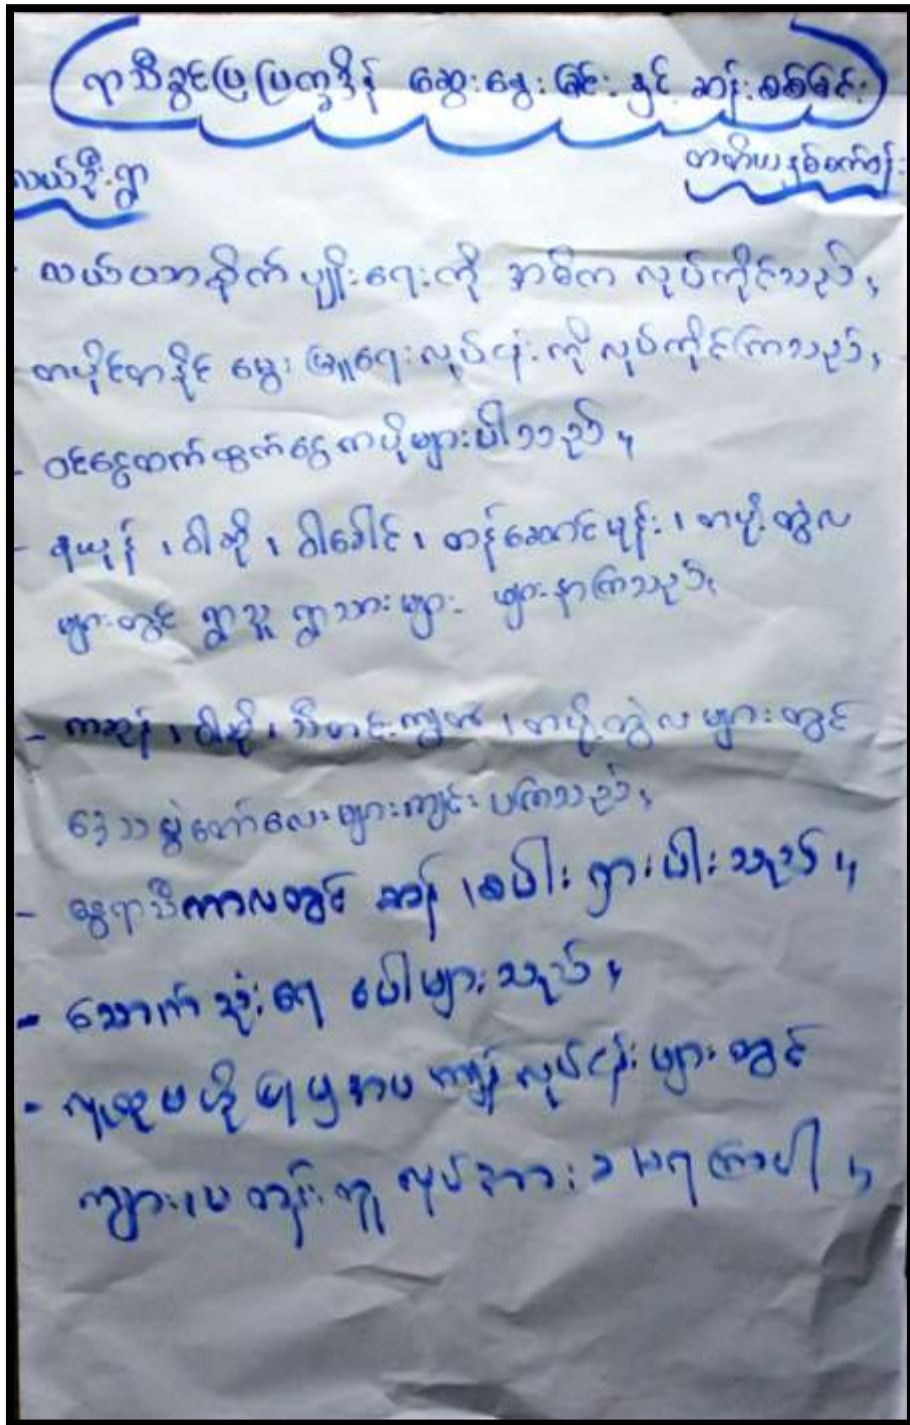 ရာသီခွင်ပြပြက္ခဒိန် ဆွေးနွေးခြင်းနှင့် ဆန်းစစ်ခြင်း
လယ်ဦးရွာ
- လယ်ယာစိုက်ပျိုးရေးကို အဓိက လုပ်ကိုင်သည်။
တပိုင်တနိုင် မွေးမြူရေးလုပ်ငန်းကို လုပ်ကိုင်ကြသည်။
- ဝင်ငွေထက် ထွက်ငွေကပိုများပါသည်။
- နယုန်၊ ဝါဆို၊ ဝါခေါင်၊ တန်ဆောင်မုန်း၊ တပို့တွဲလ
များတွင် ရွာသူ ရွာသားများ ဖျားနာကြသည်။
- ကဆုန်၊ ဝါဆို၊ သီတင်းကျွတ်၊ တပို့တွဲလများတွင်
ဒေသပွဲတော်လေးများကျင်းပကြသည်။
- နွေရာသီကာလတွင် ဆန်၊ စပါး ရှားပါးသည်။
- သောက်သုံးရေ ပေါများသည်။
- လုပ်ငန်းများတွင်
ကျား၊ မ တန်းတူ လုပ်အားခ ရကြပါ။